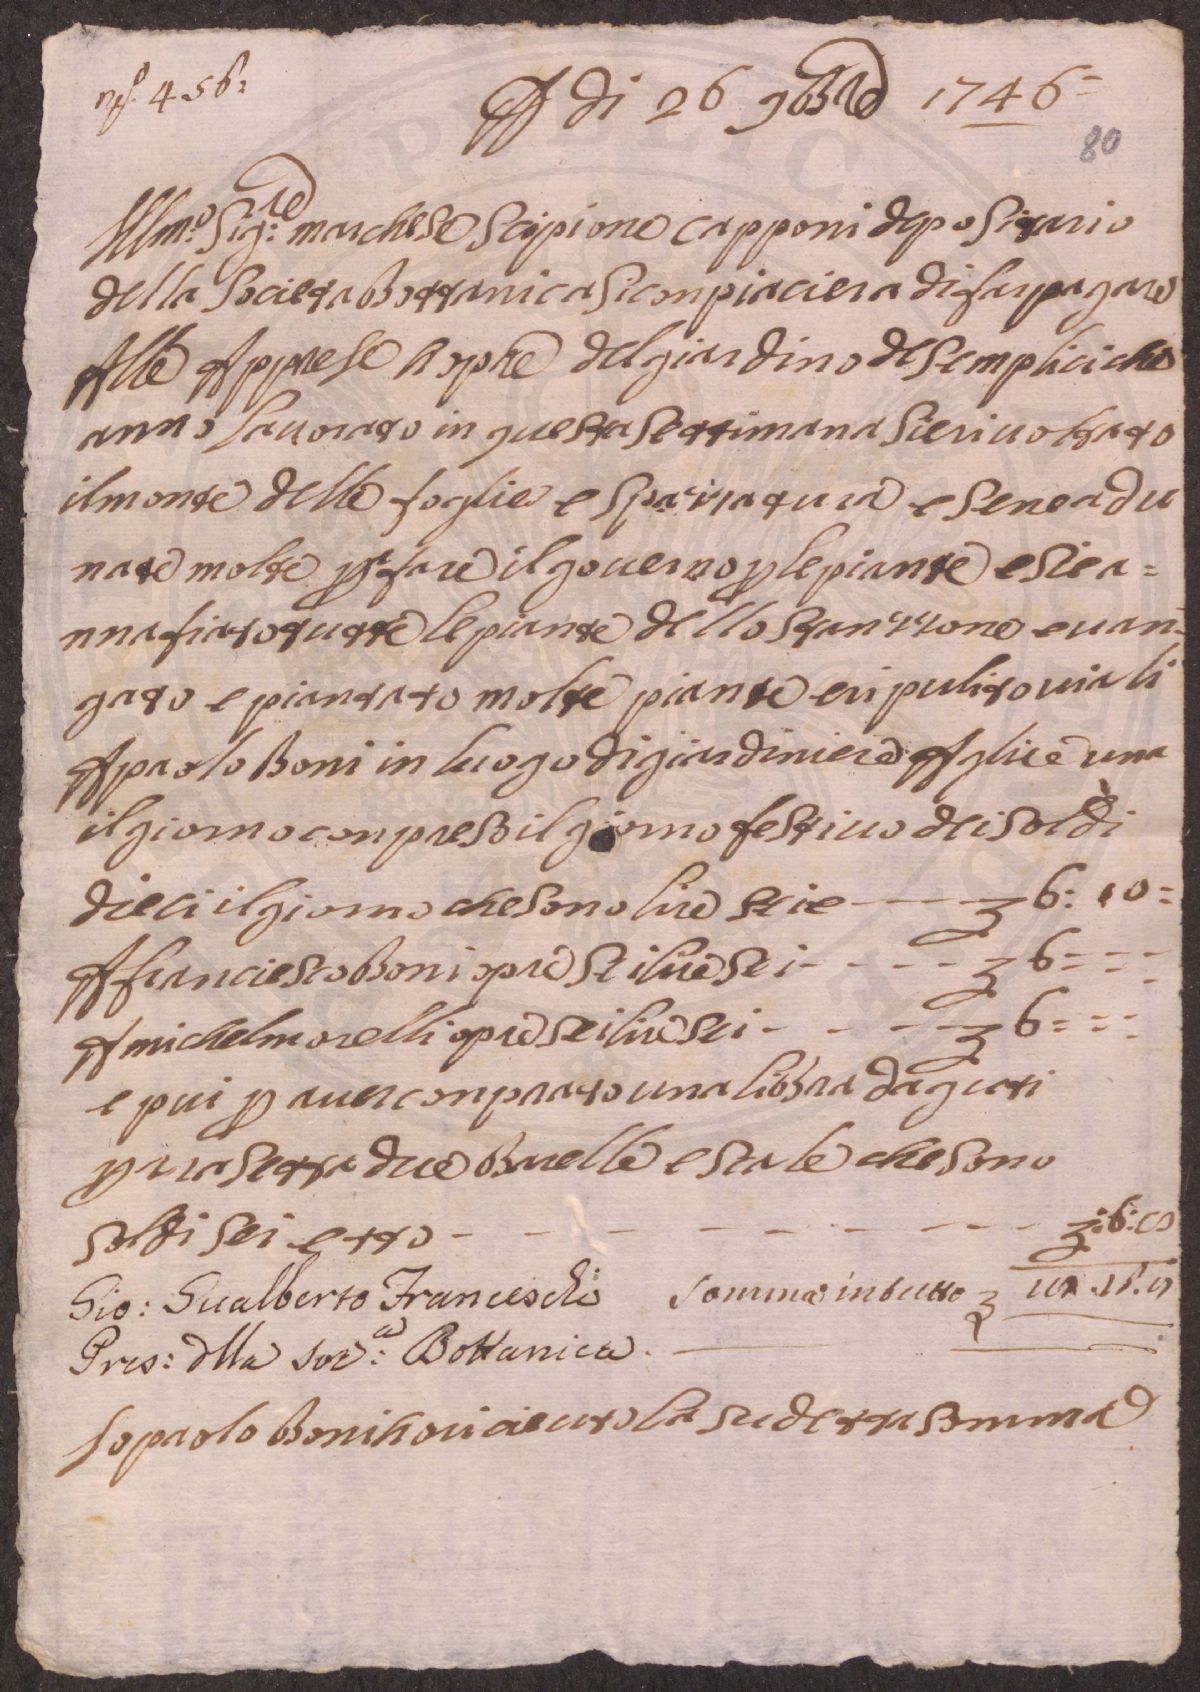 nº. 456:
A di 26 9bre 1746=
80
Illmo: Sigre: marchese scipione capponi depositario
della Societa Bottanica Si conpiaciera di far pagare
Alle Apprese hopre del giardino de semplici che
anno lauorato in questa settimana Sie riuoltato
il monte delle foglie e spazzatura e se ne adu
nate molte p fare il gouerno p le piante e sie a=
nnafiato tutte le piante dello stanzzone e uan=
gato e piantato molte piante e ripulito uiali
A paolo Boni in luogo di giardiniere A lire una
il giorno conpreso il giorno festiuo dei soldi
dieci il giorno che sono lire seie — 6: 10=
A franciesco Boni opre sei lire sei - - - - 6= = =
A michel morelli opre sei lire sei - - - 6= = =
e piu p auer conprato una libbra daguti
p rasetta due Barelle e scale che sono
soldi sei e otto - - - - - - - - :6:8
Gio: Gualberto Franceschi somma in tutto 18.16.8
Pres: dlla socа: Bottanica.
Io paolo Boni ho riceuto la sudetta somma